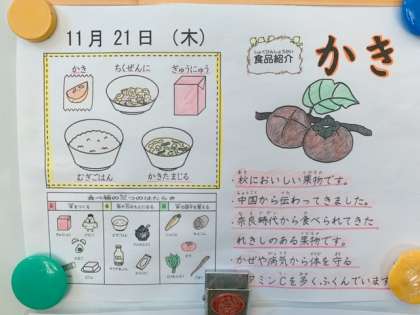 11月21日（木）
かき
ちくぜんに
ぎゅうにゅう
むぎごはん
かきたまじる
食べ物の三つのはたらき
しょくひんしょうかい
食品紹介
かき
・秋においしい果物です。
・中国から伝わってきました。
・奈良時代から食べられてきた
れきしのある果物です。
・かぜや病気から体を守る
ビタミンCを多くふくんでいます